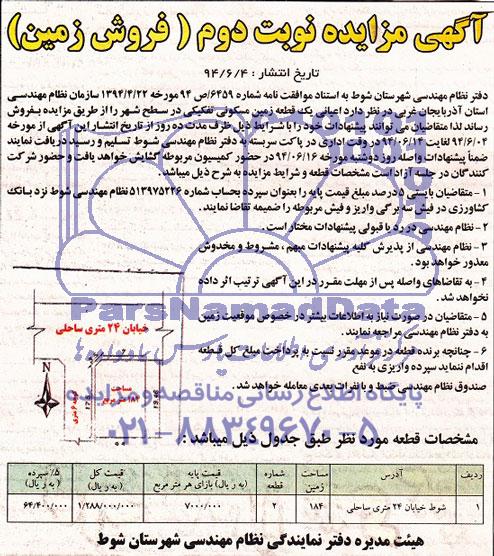 آگهی مزایده نوبت دوم ( فروش زمین)
تاریخ انتشار : ۹۴/۶/۴
دفتر نظام مهندسی شهرستان شوط به استناد موافقت نامه شماره ۶۴۵۹/ص ۹۴ مورخه ۱۳۹۴/۴/۲۲ سازمان نظام مهندسی
استان آذربایجان غربی در نظر دارد اعیانی یک قطعه زمین مسکونی تفکیکی در سطح شهر را از طریق مزایده بفروش
رساند لذا متقاضیان می توانند پیشنهادات خود را با شرایط ذیل ظرف مدت ده روز از تاریخ انتشار این آگهی از مورخه
۹۴/۶/۰۴ لغایت ۹۴/۰۶/۱۴ در وقت اداری در پاکت سربسته به دفتر نظام مهندسی شوط تسلیم و رسید دریافت نمایند
ضمناً پیشنهادات واصله روز دوشنبه مورخه ۹۴/۰۶/۱۶ در حضور کمیسیون مربوطه گشایش خواهد یافت و حضور شرکت
کنندگان در جلسه آزاد است مشخصات قطعه و شرایط مزایده به شرح ذیل میباشد.
۱- متقاضیان بایستی ۵ درصد مبلغ قیمت پایه را بعنوان سپرده بحساب شماره ۵۱۳۹۷۵۲۳۶ نظام مهندسی شوط نزد بانک
کشاورزی در فیش سه برگی واریز و فیش مربوطه را ضمیمه تقاضا نمایند.
۲- نظام مهندسی در رد یا قبولی پیشنهادات مختار است.
۳- نظام مهندسی از پذیرش کلیه پیشنهادات مبهم ، مشروط و مخدوش
معذور خواهد بود.
۴- به تقاضاهای واصله پس از مهلت مقرر در این آگهی ترتیب اثر داده
نخواهد شد.
۵- متقاضیان در صورت نیاز به اطلاعات بیشتر در خصوص موقعیت زمین
به دفتر نظام مهندسی مراجعه نمایند.
۶- چنانچه برنده قطعه در موعد مقرر نسبت به پرداخت مبلغ کل قطعه
اقدام ننماید سپرده واریزی به نفع
صندوق نظام مهندسی ضبط و با نفرات بعدی معامله خواهد شد.
خیابان ۲۴ متری ساحلی
N
مساحت
۱۸۴ متر مربع
کوچه ۶ متری
ParsNamadData
پایگاه اطلاع رسانی مناقصه و مزایده
۰۲۱-۸۸۳۴۹۶۷۰-۵
مشخصات قطعه مورد نظر طبق جدول ذیل میباشد :
ردیف آدرس مساحت زمین شماره قطعه قیمت پایه (به ریال) بازای هر متر مربع قیمت کل (به ریال) ۵٪ سپرده (به ریال)
۱ شوط خیابان ۲۴ متری ساحلی ۱۸۴ ۲ ۷۰۰۰/۰۰۰ ۱/۲۸۸/۰۰۰/۰۰۰ ۶۴/۴۰۰/۰۰۰
هیئت مدیره دفتر نمایندگی نظام مهندسی شهرستان شوط